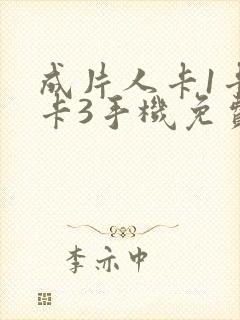 成片人卡1卡
卡3手機免費
李亦中